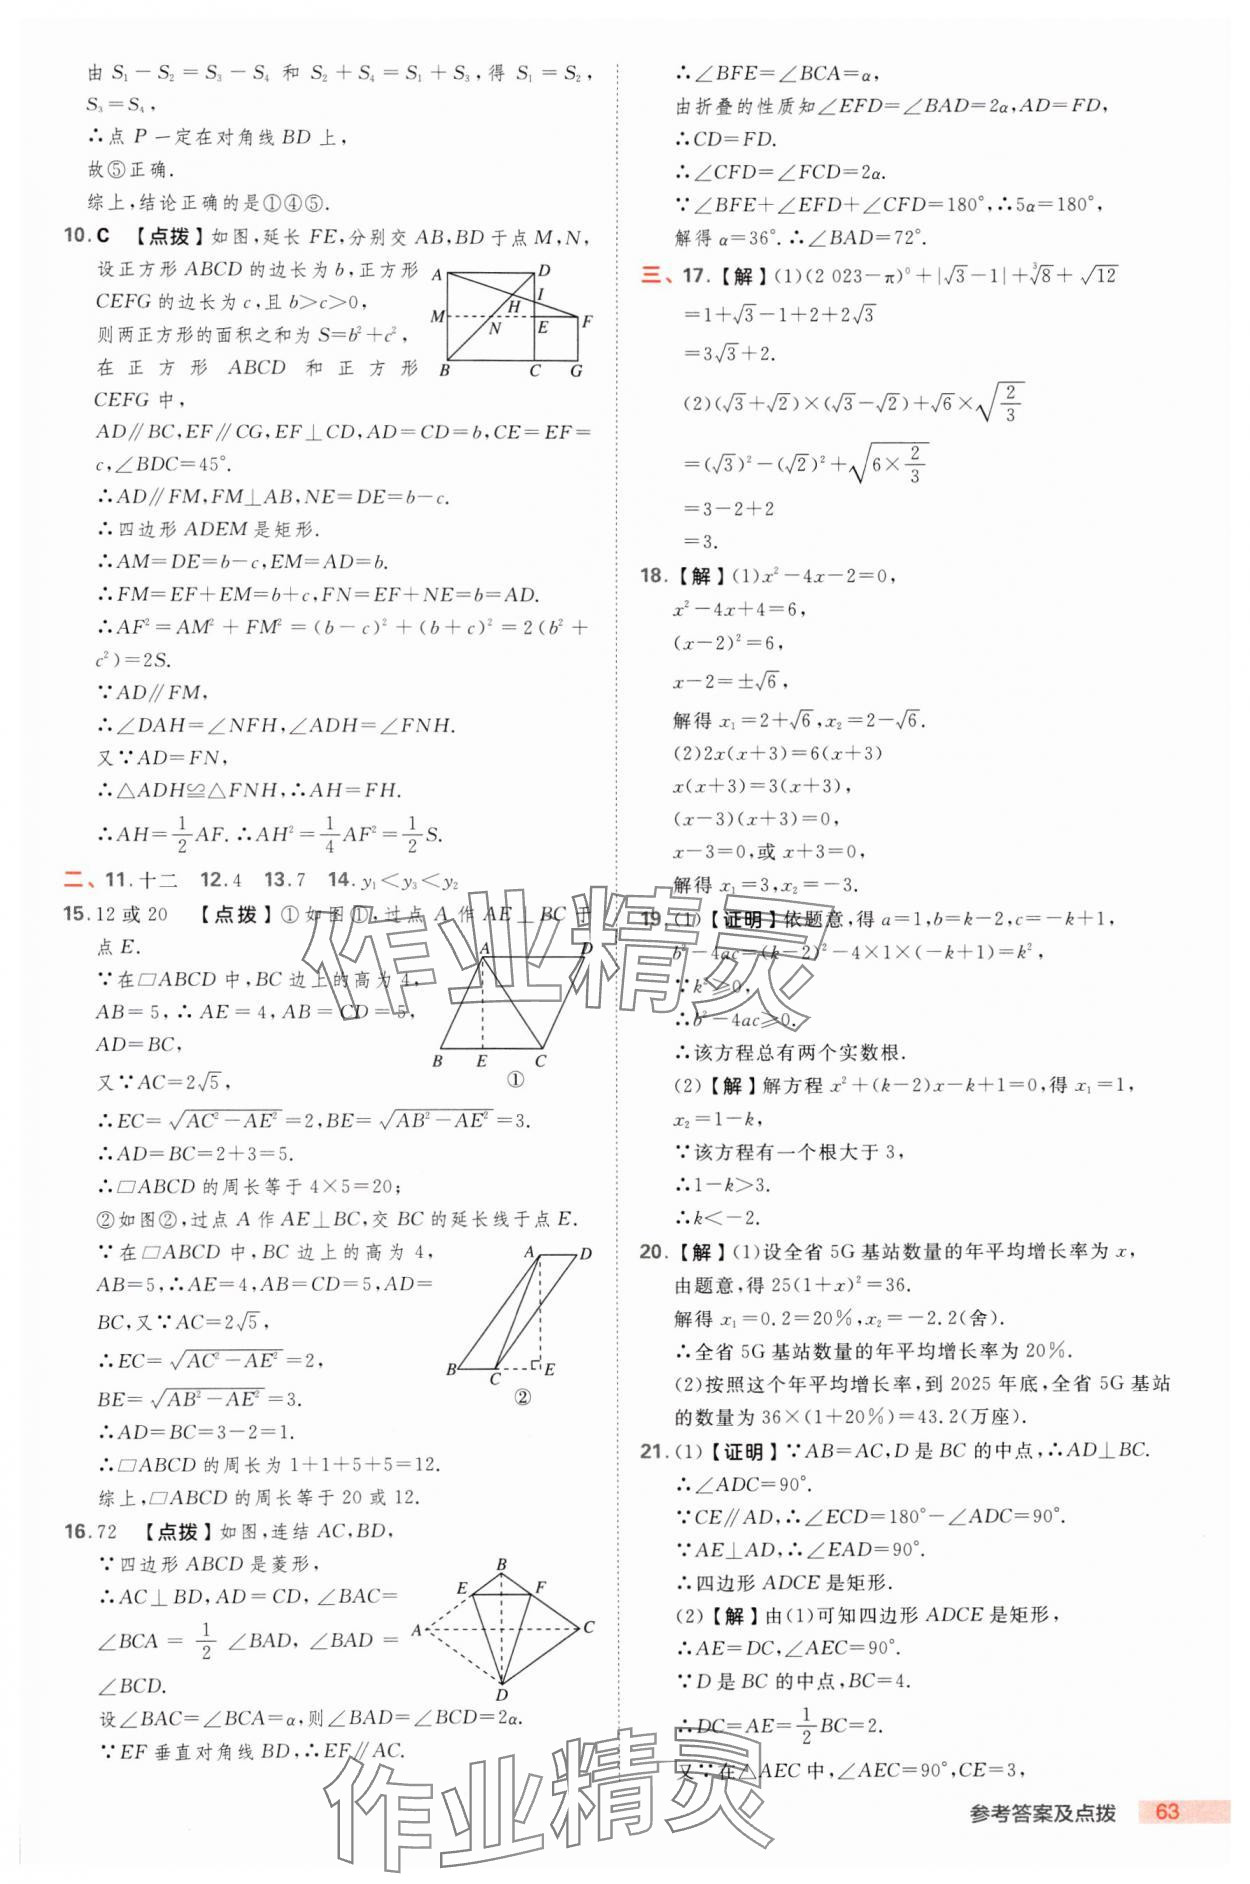 由 S₁－S₂＝S₃－S₄ 和 S₂＋S₄＝S₁＋S₃,得 S₁＝S₂,
S₃＝S₄,
∴点 P 一定在对角线 BD 上,
故⑤正确.
综上,结论正确的是①④⑤.
10. C 【点拨】如图,延长 FE,分别交 AB,BD 于点 M,N,
设正方形 ABCD 的边长为 b,正方形
CEFG 的边长为 c,且 b＞c＞0,
则两正方形的面积之和为 S＝b²＋c²,
在正方形 ABCD 和正方形
CEFG 中,
A D I H M N E F B C G
AD∥BC,EF∥CG,EF⊥CD,AD＝CD＝b,CE＝EF＝
c,∠BDC＝45°.
∴AD∥FM,FM⊥AB,NE＝DE＝b－c.
∴四边形 ADEM 是矩形.
∴AM＝DE＝b－c,EM＝AD＝b.
∴FM＝EF＋EM＝b＋c,FN＝EF＋NE＝b＝AD.
∴AF²＝AM²＋FM²＝(b－c)²＋(b＋c)²＝2(b²＋
c²)＝2S.
∵AD∥FM,
∴∠DAH＝∠NFH,∠ADH＝∠FNH.
又∵AD＝FN,
∴△ADH≌△FNH,∴AH＝FH.
∴AH＝1/2 AF.∴AH²＝1/4 AF²＝1/2 S.
二、11. 十二 12. 4 13. 7 14. y₁＜y₃＜y₂
15. 12 或 20 【点拨】①如图①,过点 A 作 AE⊥BC 于
点 E.
∵在▱ABCD 中,BC 边上的高为 4,
AB＝5,∴AE＝4,AB＝CD＝5,
AD＝BC,
又∵AC＝2√5,
A D B E C ①
∴EC＝√(AC²－AE²)＝2,BE＝√(AB²－AE²)＝3.
∴AD＝BC＝2＋3＝5.
∴▱ABCD 的周长等于 4×5＝20;
②如图②,过点 A 作 AE⊥BC,交 BC 的延长线于点 E.
∵在▱ABCD 中,BC 边上的高为 4,
AB＝5,∴AE＝4,AB＝CD＝5,AD＝
BC,又∵AC＝2√5,
∴EC＝√(AC²－AE²)＝2,
BE＝√(AB²－AE²)＝3.
A D B C E ②
∴AD＝BC＝3－2＝1.
∴▱ABCD 的周长为 1＋1＋5＋5＝12.
综上,▱ABCD 的周长等于 20 或 12.
16. 72 【点拨】如图,连结 AC,BD,
∵四边形 ABCD 是菱形,
∴AC⊥BD,AD＝CD,∠BAC＝
∠BCA＝1/2 ∠BAD,∠BAD＝
∠BCD.
B E F A C D
设∠BAC＝∠BCA＝α,则∠BAD＝∠BCD＝2α.
∵EF 垂直对角线 BD,∴EF∥AC.
∴∠BFE＝∠BCA＝α,
由折叠的性质知∠EFD＝∠BAD＝2α,AD＝FD,
∴CD＝FD.
∴∠CFD＝∠FCD＝2α.
∵∠BFE＋∠EFD＋∠CFD＝180°,∴5α＝180°,
解得 α＝36°.∴∠BAD＝72°.
三、17.【解】(1)(2 023－π)⁰＋|√3－1|＋∛8＋√12
＝1＋√3－1＋2＋2√3
＝3√3＋2.
(2)(√3＋√2)×(√3－√2)＋√6×√(2/3)
＝(√3)²－(√2)²＋√(6×2/3)
＝3－2＋2
＝3.
18.【解】(1)x²－4x－2＝0,
x²－4x＋4＝6,
(x－2)²＝6,
x－2＝±√6,
解得 x₁＝2＋√6,x₂＝2－√6.
(2)2x(x＋3)＝6(x＋3)
x(x＋3)＝3(x＋3),
(x－3)(x＋3)＝0,
x－3＝0,或 x＋3＝0,
解得 x₁＝3,x₂＝－3.
19 (1)【证明】依题意,得 a＝1,b＝k－2,c＝－k＋1,
b²－4ac＝(k－2)²－4×1×(－k＋1)＝k²,
∵k²≥0,
∴b²－4ac≥0.
∴该方程总有两个实数根.
(2)【解】解方程 x²＋(k－2)x－k＋1＝0,得 x₁＝1,
x₂＝1－k,
∵该方程有一个根大于 3,
∴1－k＞3.
∴k＜－2.
20.【解】(1)设全省 5G 基站数量的年平均增长率为 x,
由题意,得 25(1＋x)²＝36.
解得 x₁＝0.2＝20%,x₂＝－2.2(舍).
∴全省 5G 基站数量的年平均增长率为 20%.
(2)按照这个年平均增长率,到 2025 年底,全省 5G 基站
的数量为 36×(1＋20%)＝43.2(万座).
21.(1)【证明】∵AB＝AC,D 是 BC 的中点,∴AD⊥BC.
∴∠ADC＝90°.
∵CE∥AD,∴∠ECD＝180°－∠ADC＝90°.
∵AE⊥AD,∴∠EAD＝90°.
∴四边形 ADCE 是矩形.
(2)【解】由(1)可知四边形 ADCE 是矩形,
∴AE＝DC,∠AEC＝90°.
∵D 是 BC 的中点,BC＝4.
∴DC＝AE＝1/2 BC＝2.
又∵在△AEC 中,∠AEC＝90°,CE＝3,
作业精灵
作业精灵
参考答案及点拨 63